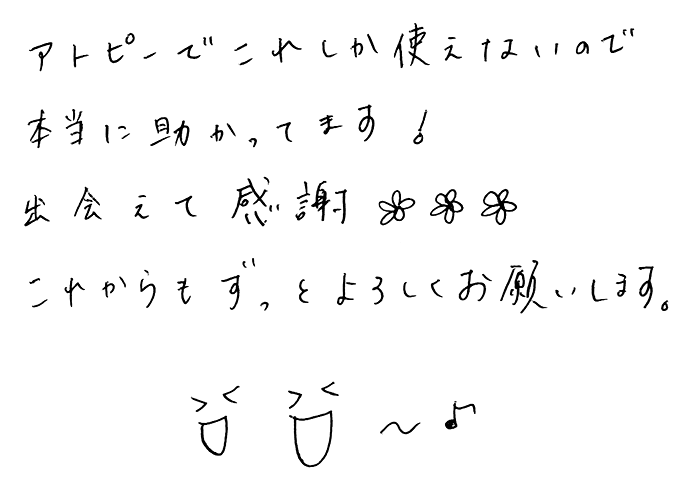 アトピーでこれしか使えないので
本当に助かってます!
出会えて感謝
これからもずっとよろしくお願いします。